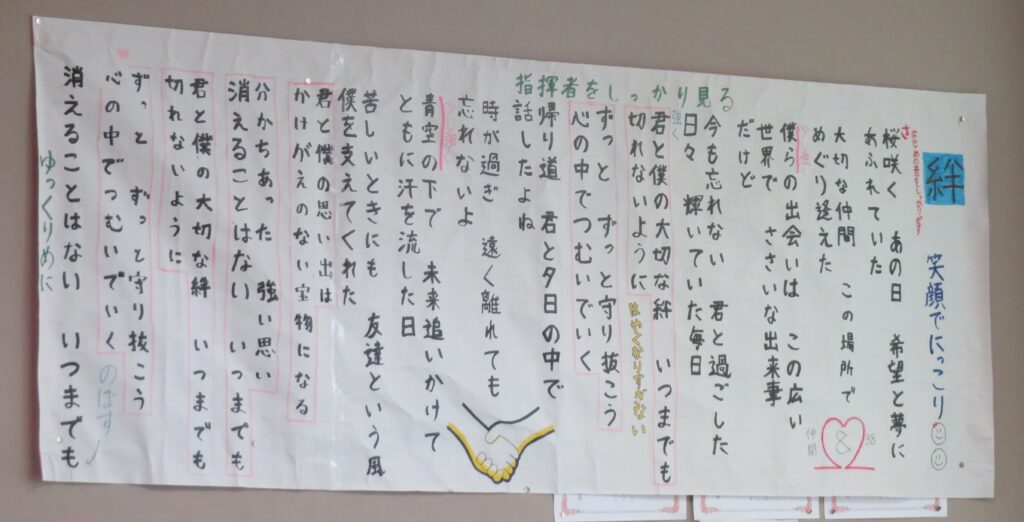 絆
笑顔でにっこり
桜咲く あの日 希望と夢に
さ
あふれていた
大切な仲間 この場所で
めぐり逢えた
僕らの出会いは この広い
世界で ささいな出来事
だけど
今も忘れない 君と過ごした
日々 輝いていた毎日
強く
君と僕の大切な絆 いつまでも
切れないように
はやくなりすぎない
ずっと ずっと守り抜こう
心の中でつむいでいく
帰り道 君と夕日の中で
話したよね
指揮者をしっかり見る
時が過ぎ 遠く離れても
忘れないよ
青空の下で 未来追いかけて
ともに汗を流した日
苦しいときにも 友達という風
僕を支えてくれた
君と僕の思い出は
かけがえのない宝物になる
分かちあった 強い思い
消えることはない いつまでも
君と僕の大切な絆 いつまでも
切れないように
ずっと ずっと守り抜こう
心の中でつむいでいく
のばす
消えることはない いつまでも
ゆっくりめに
38
&
仲間